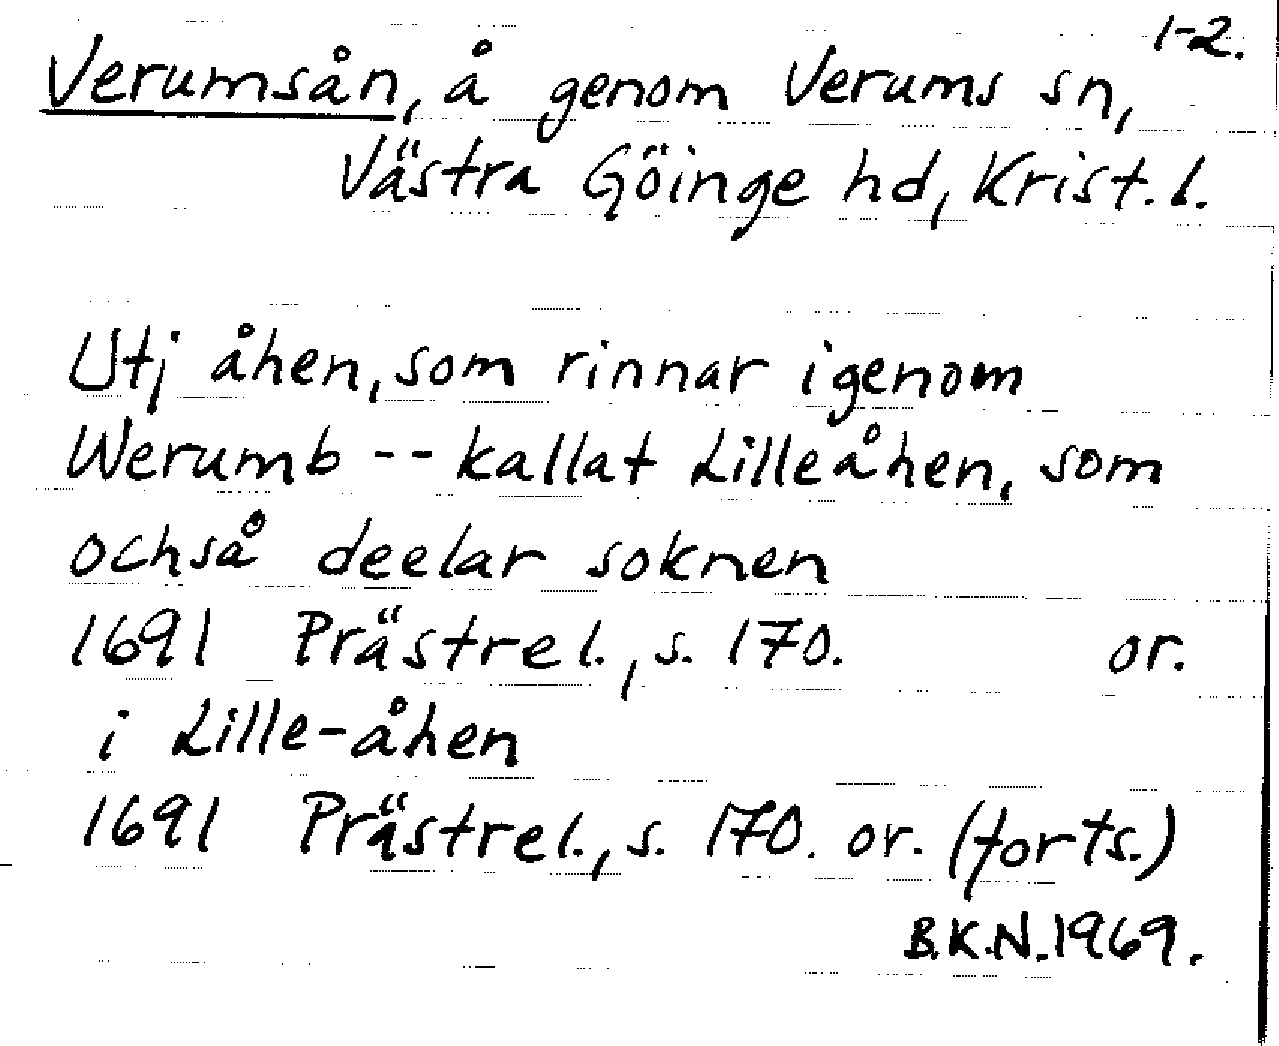 1-2.
Verumsån, å genom Verums sn,
Västra Göinge hd, Krist. l.
Utj åhen, som rinnar igenom
Werumb -- kallat Lilleåhen, som
ochså deelar soknen
1691 Prästrel., s. 170. or.
i Lille-åhen
1691 Prästrel., s. 170. or. (forts.)
B.K.N. 1969.